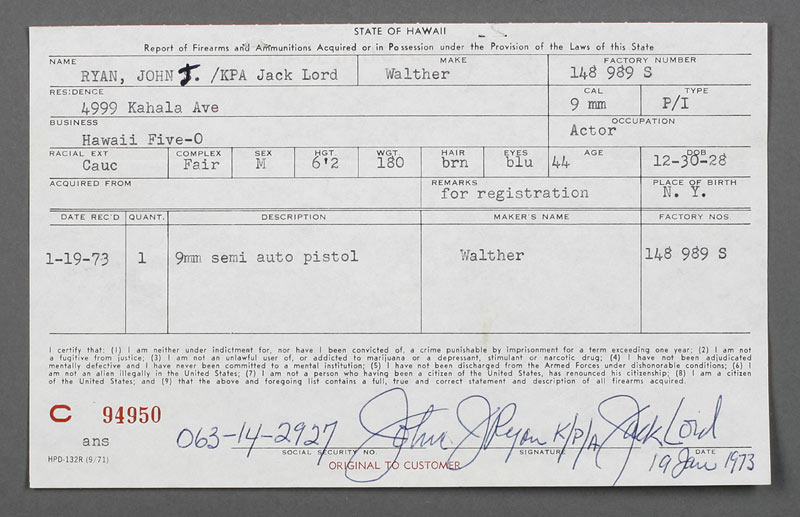 STATE OF HAWAII
Report of Firearms and Ammunitions Acquired or in Possession under the Provision of the Laws of this State
NAME MAKE FACTORY NUMBER
RYAN, JOHN J. /KPA Jack Lord Walther 148 989 S
RESIDENCE CAL TYPE
4999 Kahala Ave 9 mm P/I
BUSINESS OCCUPATION
Hawaii Five-O Actor
RACIAL EXT COMPLEX SEX HGT. WGT. HAIR EYES AGE DOB
Cauc Fair M 6'2 180 brn blu 44 12-30-28
ACQUIRED FROM REMARKS PLACE OF BIRTH
for registration N. Y.
DATE REC'D QUANT. DESCRIPTION MAKER'S NAME FACTORY NOS
1-19-73 1 9mm semi auto pistol Walther 148 989 S
I certify that: (1) I am neither under indictment for, nor have I been convicted of, a crime punishable by imprisonment for a term exceeding one year; (2) I am not
a fugitive from justice; (3) I am not an unlawful user of, or addicted to marijuana or a depressant, stimulant or narcotic drug; (4) I have not been adjudicated
mentally defective and I have never been committed to a mental institution; (5) I have not been discharged from the Armed Forces under dishonorable conditions; (6) I
am not an alien illegally in the United States; (7) I am not a person who having been a citizen of the United States, has renounced his citizenship; (8) I am a citizen
of the United States; and (9) that the above and foregoing list contains a full, true and correct statement and description of all firearms acquired.
C 94950
ans 063-14-2927 John J Ryan K/P/A Jack Lord
SOCIAL SECURITY NO. SIGNATURE DATE
HPD-132R (9/71) ORIGINAL TO CUSTOMER 19 Jan 1973